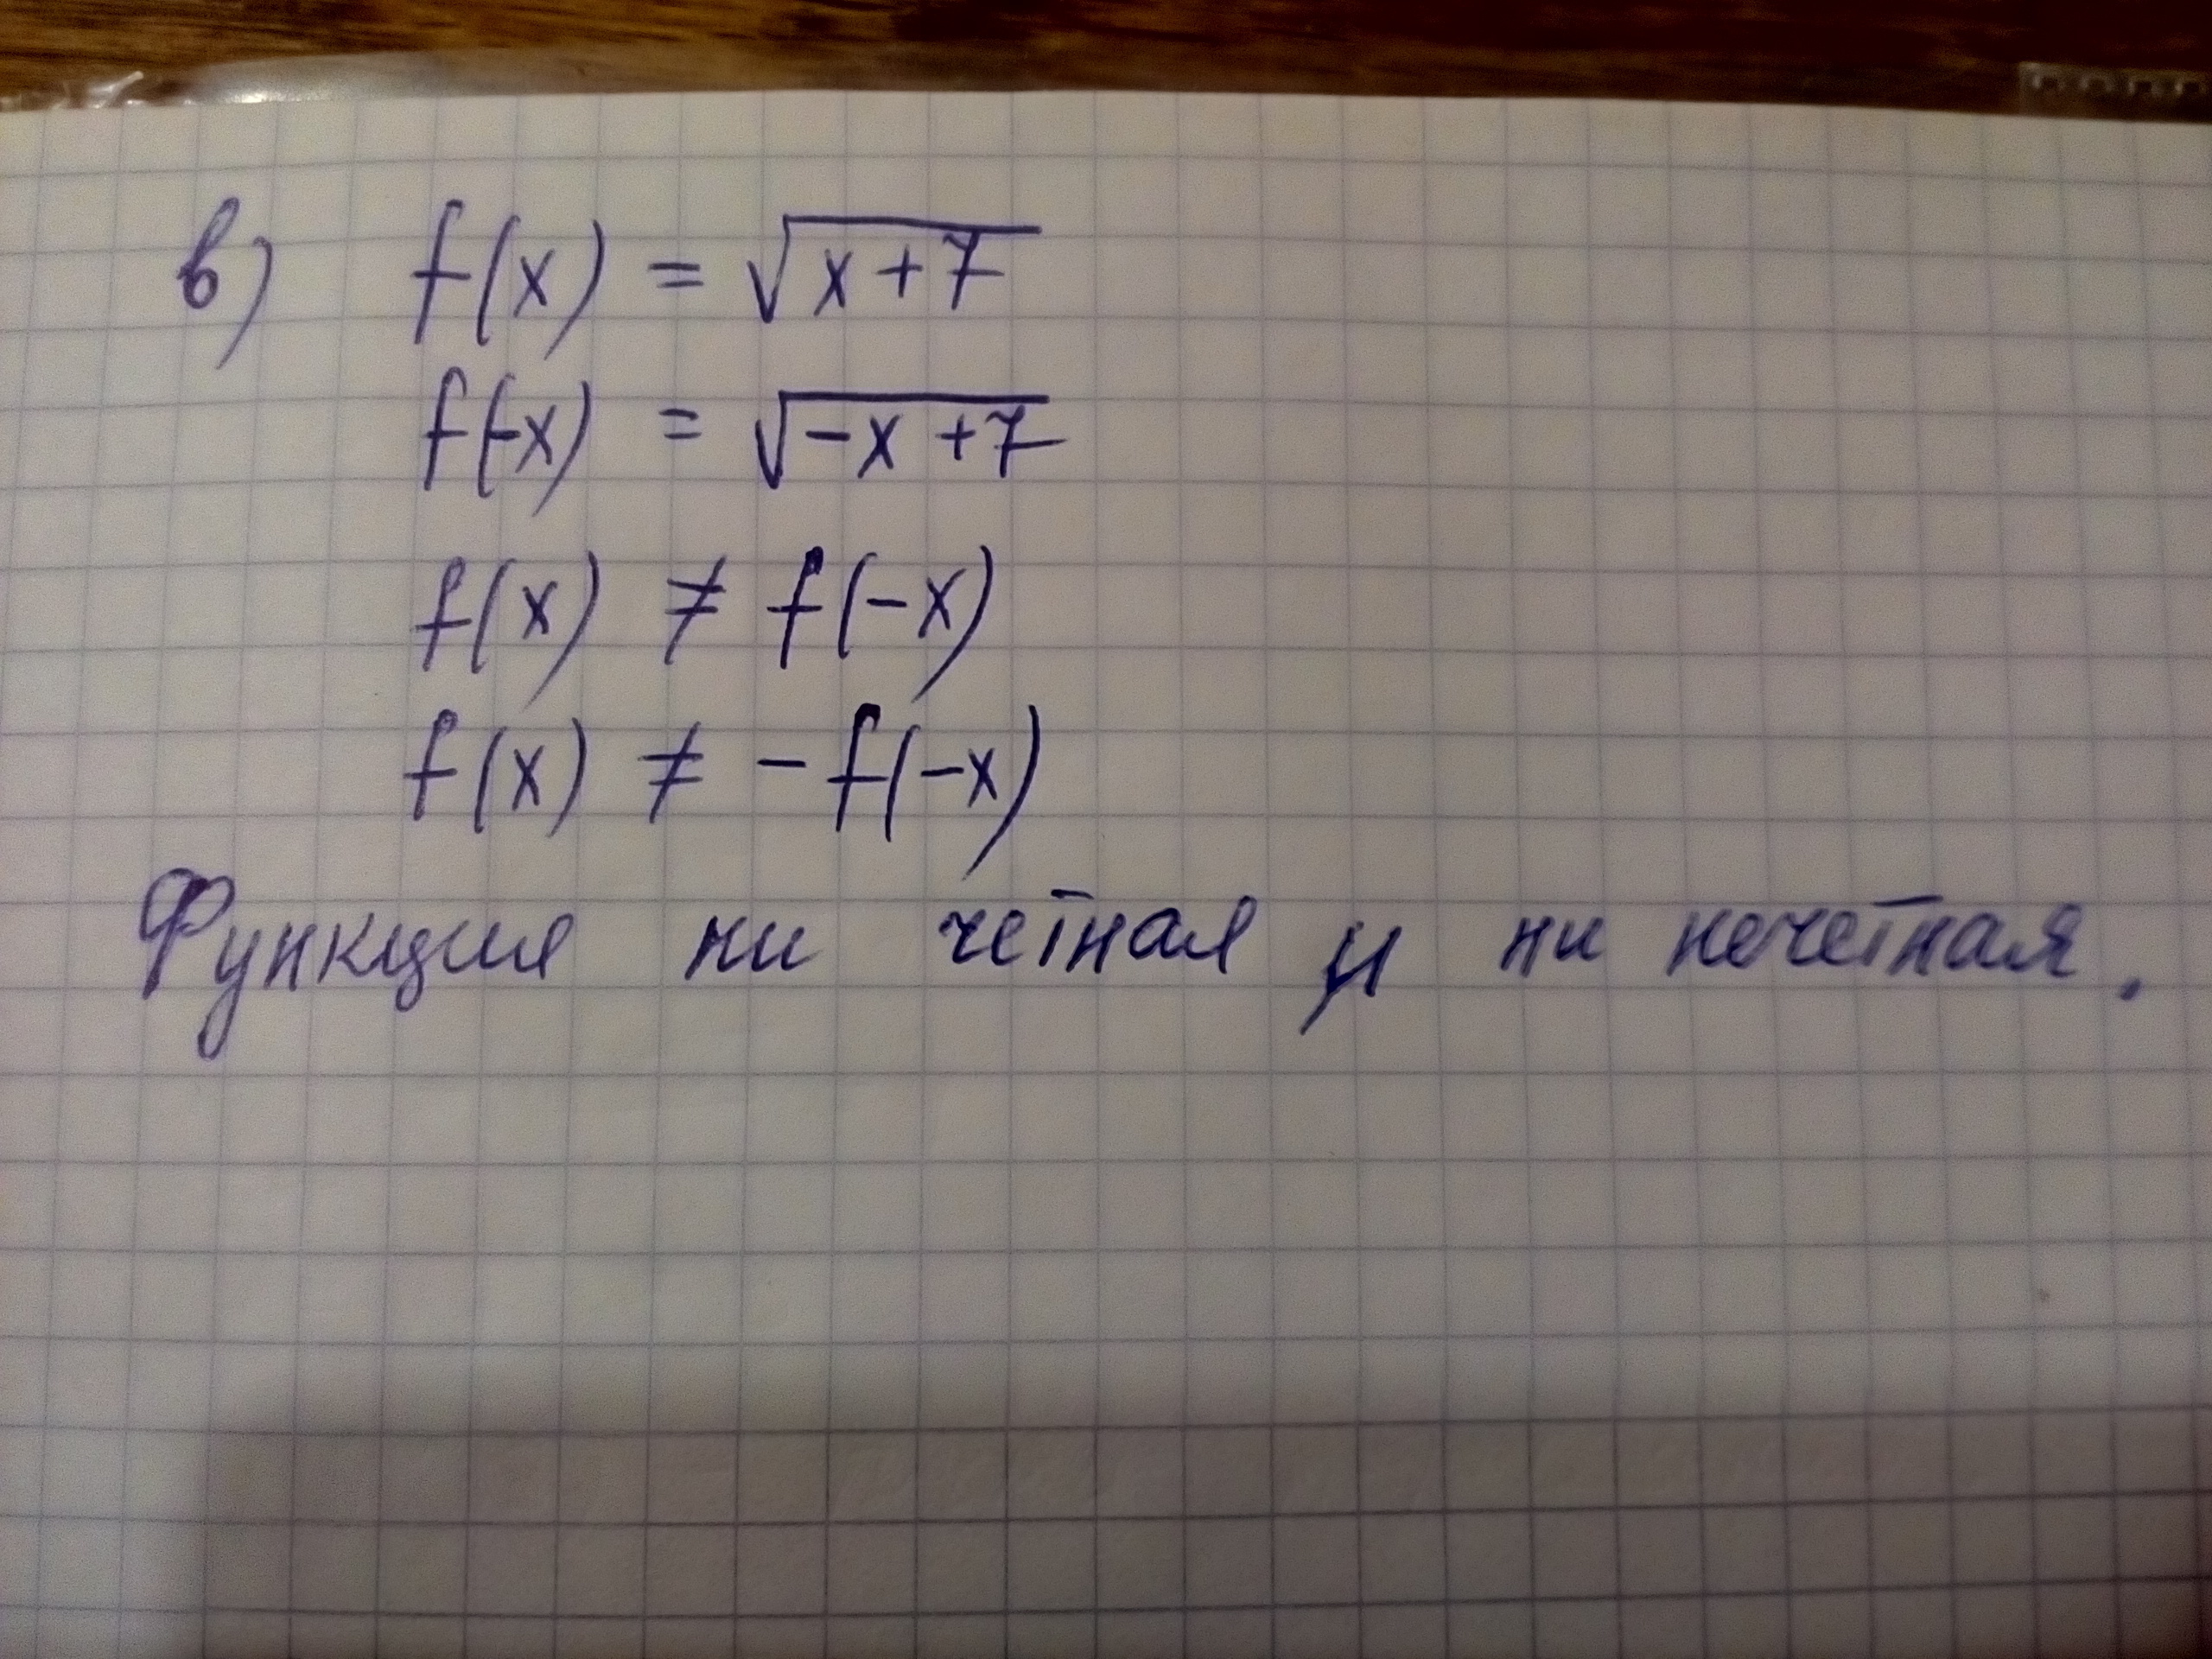 в) f(x) = √(x+7)
f(-x) = √(-x+7)
f(x) ≠ f(-x)
f(x) ≠ -f(-x)
Функция ни четная и ни нечетная.